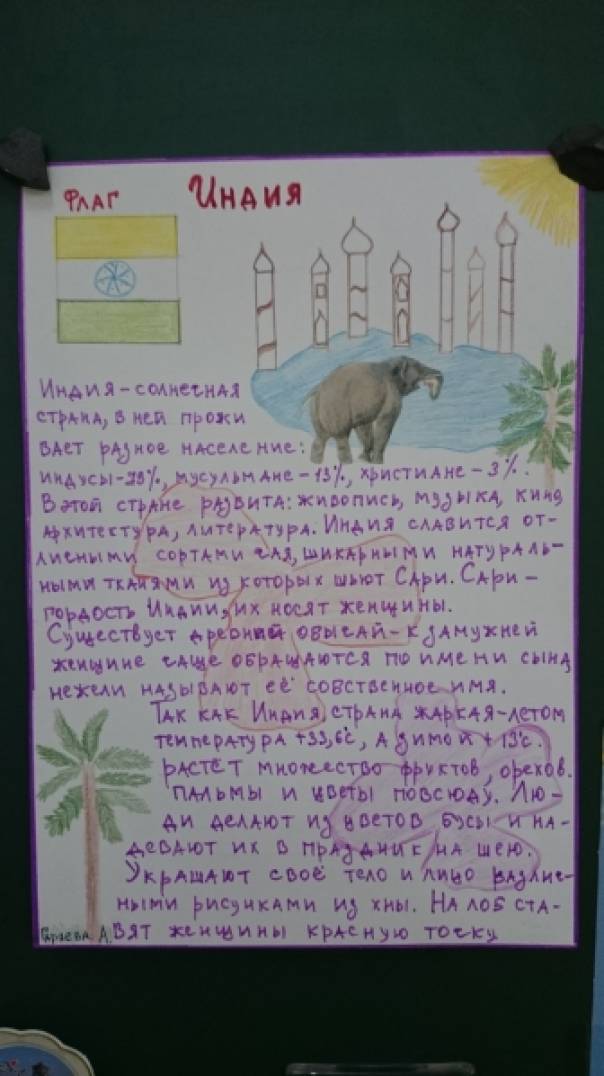 Флаг
Индия
Индия-солнечная
страна, в ней прожи
вает разное население:
индусы-79%, мусульмане-13%, христиане-3%.
В этой стране развита: живопись, музыка, кино
архитектура, литература. Индия славится от-
личными сортами чая, шикарными натураль-
ными тканями из которых шьют Сари. Сари-
гордость Индии, их носят женщины.
Существует древний обычай-к замужней
женщине чаще обращаются по имени сына,
нежели называют её собственное имя.
Так как Индия, страна жаркая-летом
температура +33,6°с, а зимой +13°с.
растёт множество фруктов, орехов.
Пальмы и цветы повсюду. Лю-
ди делают из цветов бусы и на-
девают их в праздник на шею.
Украшают своё тело и лицо различ-
ными рисунками из хны. На лоб ста-
вят женщины красную точку
А.